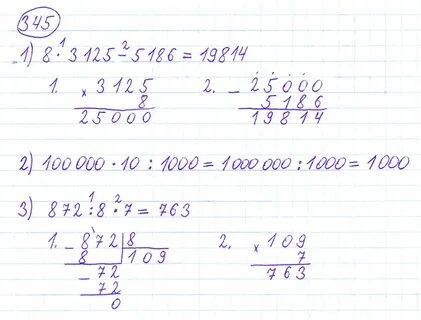 345
1) 8 · 3125 - 5186 = 19814
1 2
1. × 3125
8
25000
2. - 25000
5186
19814
2) 100 000 · 10 : 1000 = 1 000 000 : 1000 = 1000
3) 872 : 8 · 7 = 763
1 2
1. - 872 | 8
8 109
- 72
72
0
2. × 109
7
763